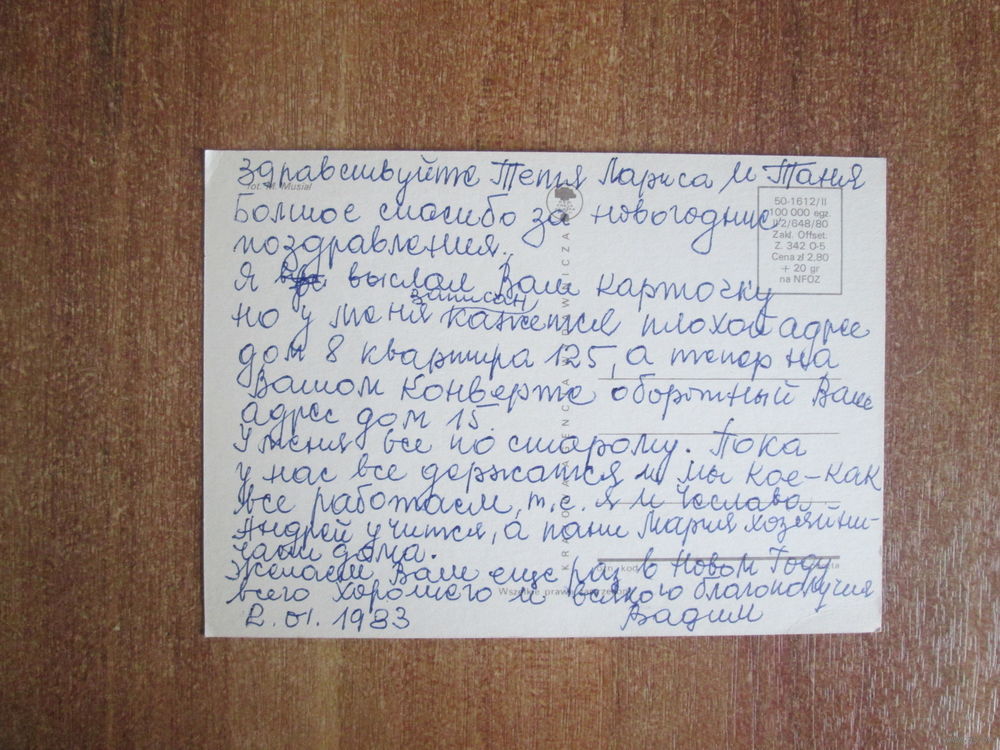 Здравствуйте Тетя Лариса и Таня
fot. M. Musiał
Болшое спасибо за новогодние
поздравления.
Я выслал Вам карточку
записан
но у меня кажется плохой адрес
дом 8 квартира 125, а тепер на
Вашом конверте оборотный Ваш
адрес дом 15.
У меня все по старому. Пока
у нас все держатся и мы кое-как
все работаем, т.е. я и Чеслава
Андрей учится, а пани Мария хозяйни-
чает дома.
Желаем Вам еще раз в Новом Году
всего хорошего и всякого благополучия
2.01.1983 Вадим
50-1612/II
100 000 egz.
II/2/648/80
Zakł. Offset.
Z. 342 O-5
Cena zł 2.80
+ 20 gr
na NFOZ
KRAJOWA AGENCJA WYDAWNICZA
Wszelkie prawa zastrzeżone